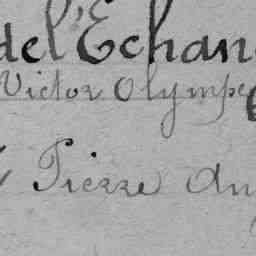 del'Echan
Victor Olympe
Pierre Au